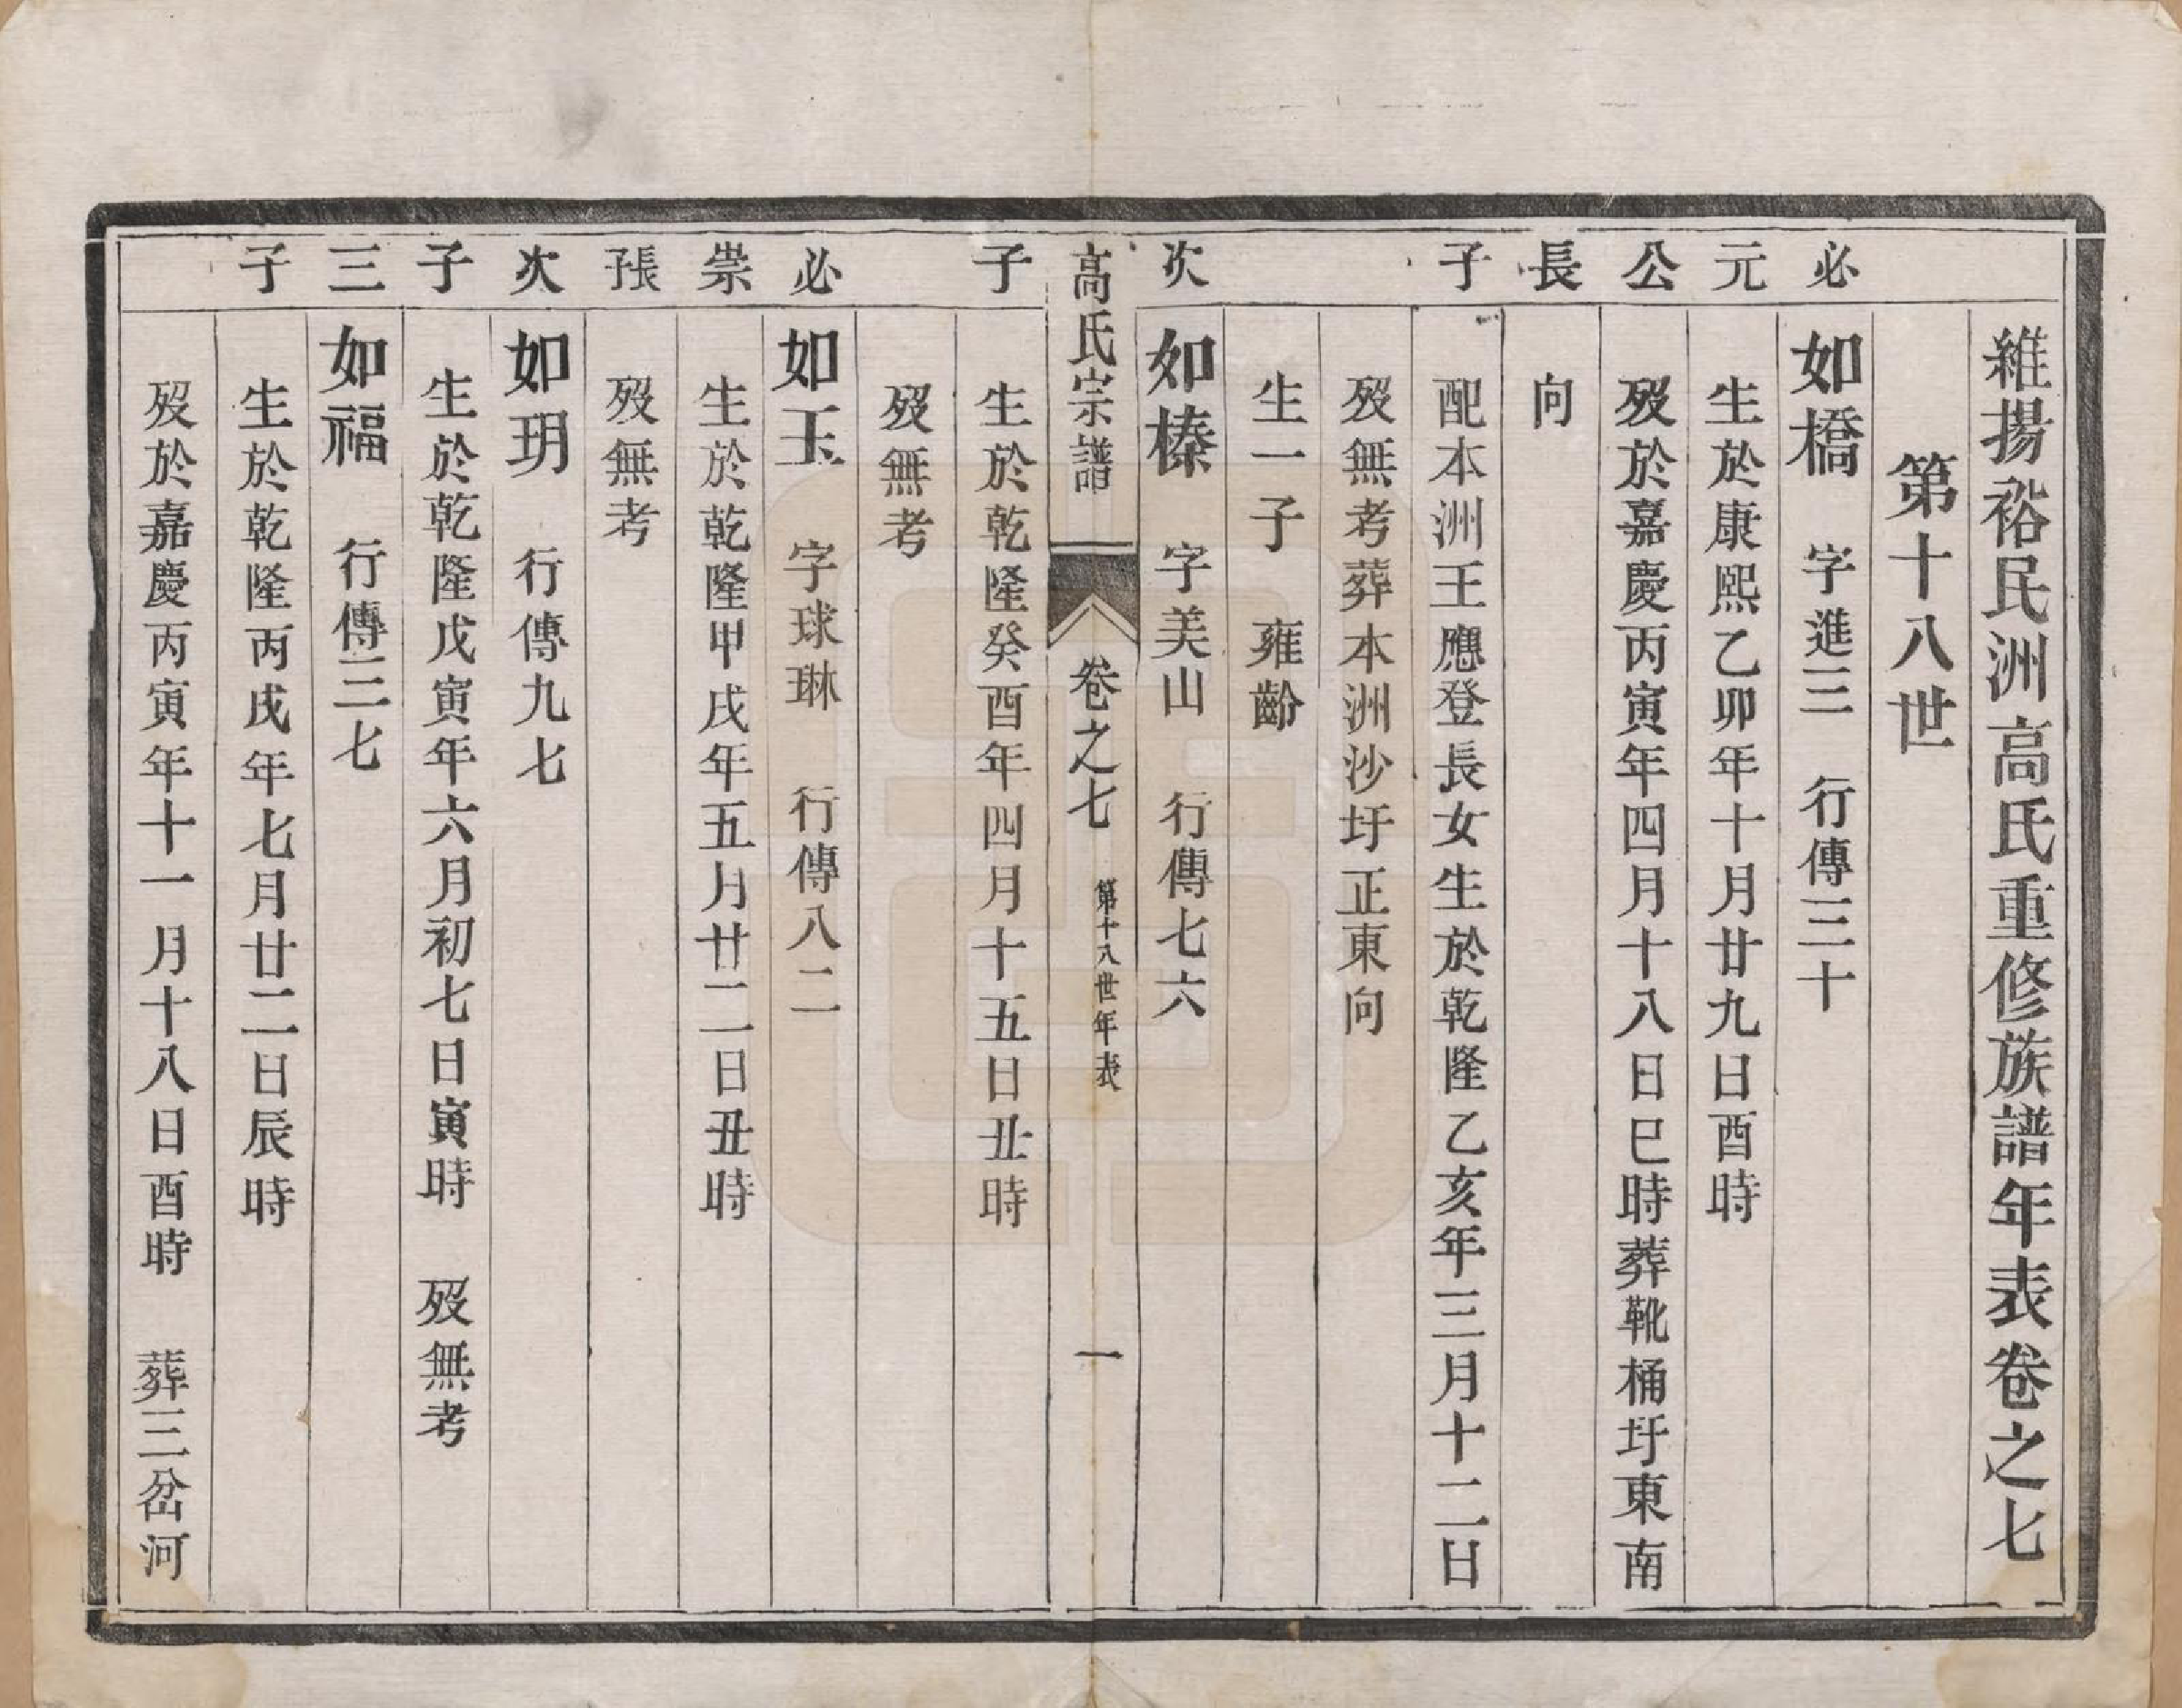 維揚裕民洲高氏重修族譜年表卷之七
第十八世
必元公長子
如橋 字進三 行傳三十
生於康熙乙卯年十月廿九日酉時
歿於嘉慶丙寅年四月十八日巳時葬靴桶圩東南
向
配本洲王應登長女生於乾隆乙亥年三月十二日
歿無考葬本洲沙圩正東向
生一子 雍齡
次子
如榛 字美山 行傳七六
高氏宗譜 卷之七 第十八世年表 一
生於乾隆癸酉年四月十五日丑時
歿無考
必崇長子
如玉 字球琳 行傳八二
生於乾隆甲戌年五月廿二日丑時
歿無考
次子
如玥 行傳九七
生於乾隆戊寅年六月初七日寅時 歿無考
三子
如福 行傳三七
生於乾隆丙戌年七月廿二日辰時
歿於嘉慶丙寅年十一月十八日酉時 葬三岔河